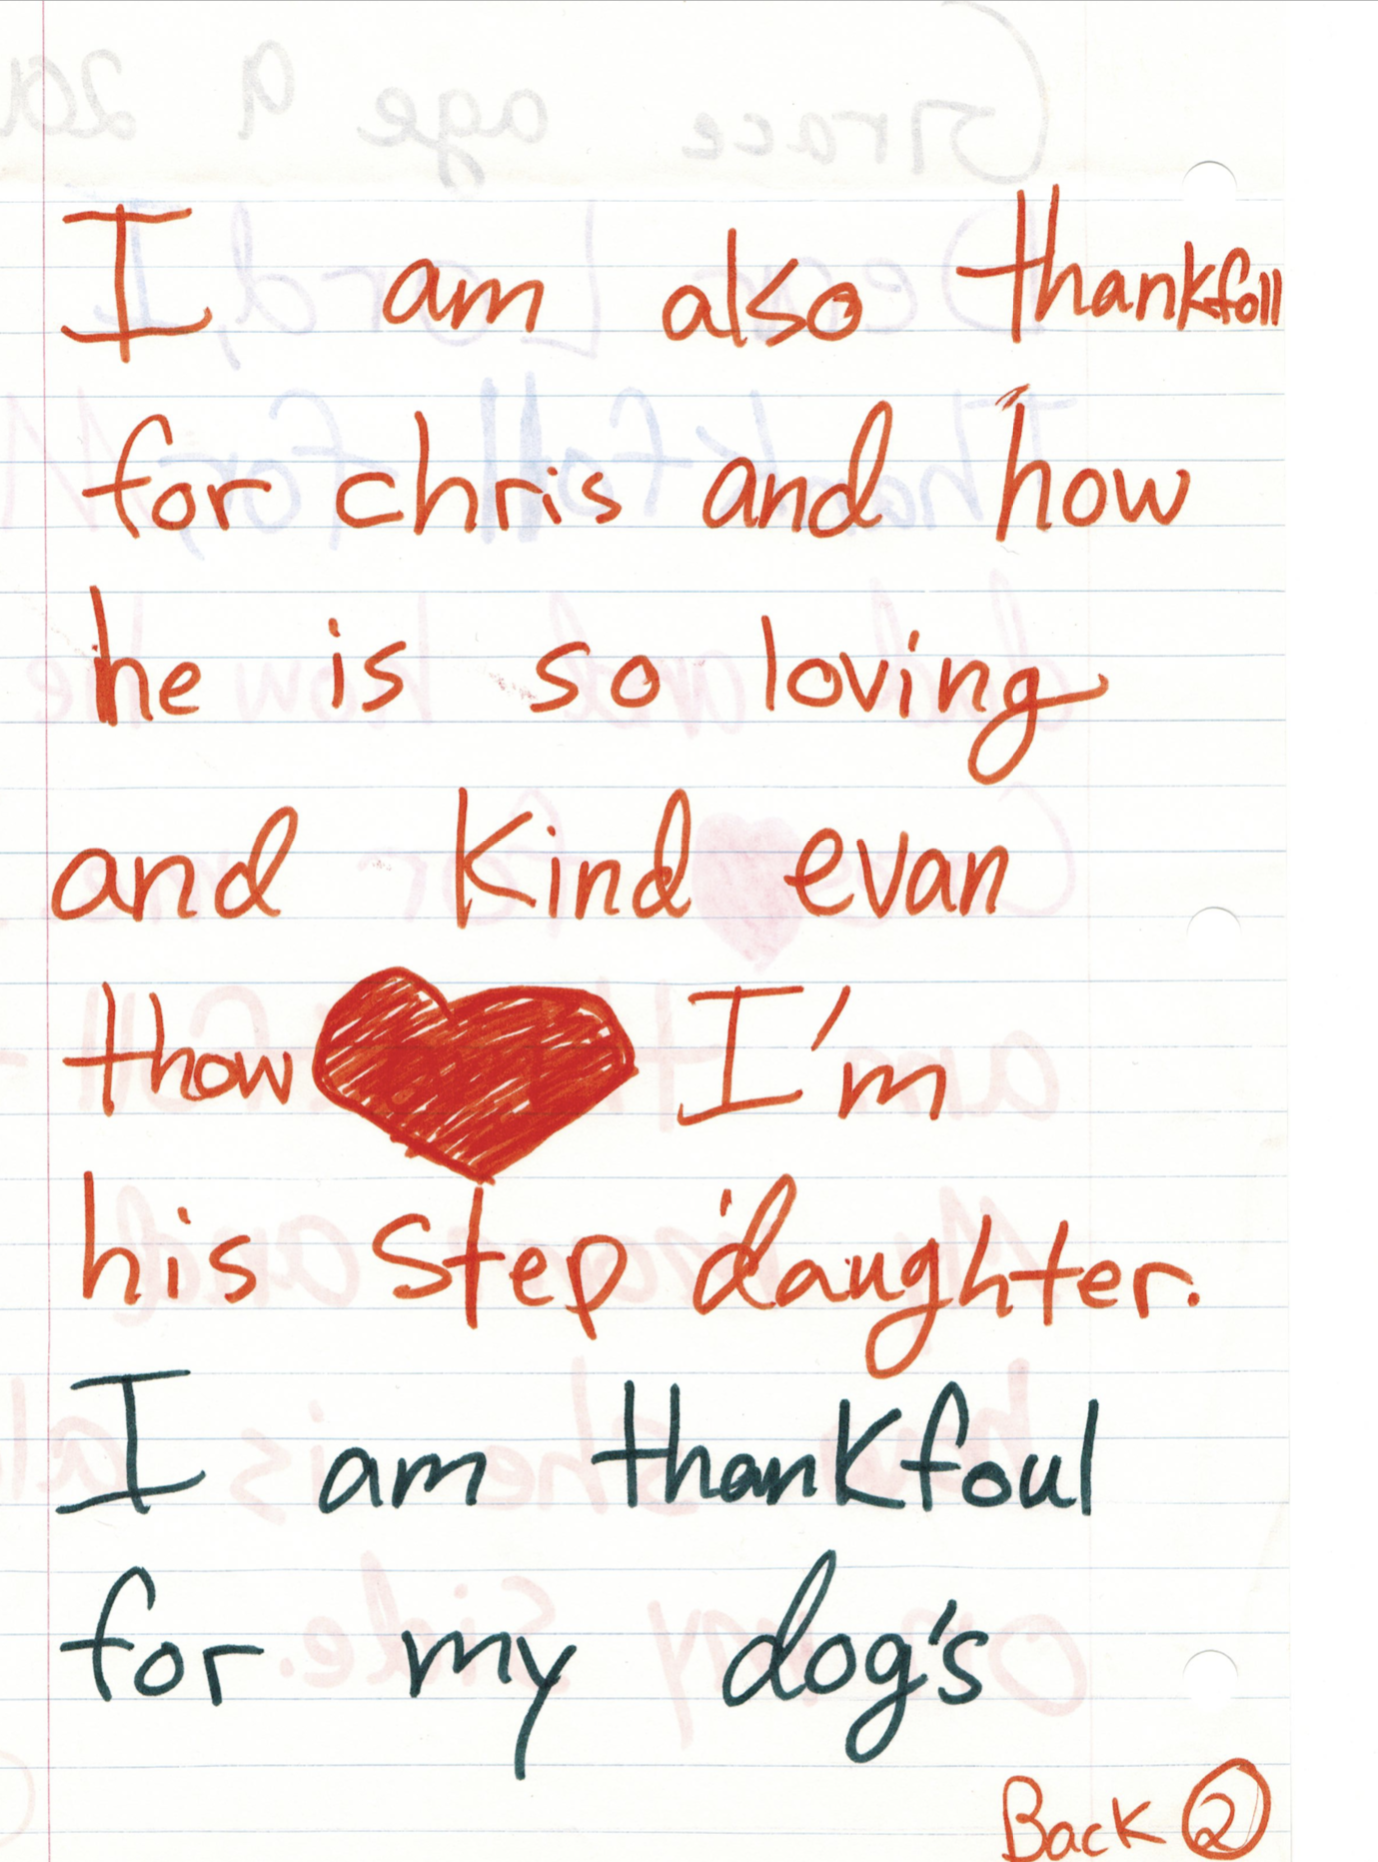 I am also thankfoll
for chris and how
he is so loving
and Kind evan
thow I'm
his step daughter.
I am thankfoul
for my dog's
Back 2